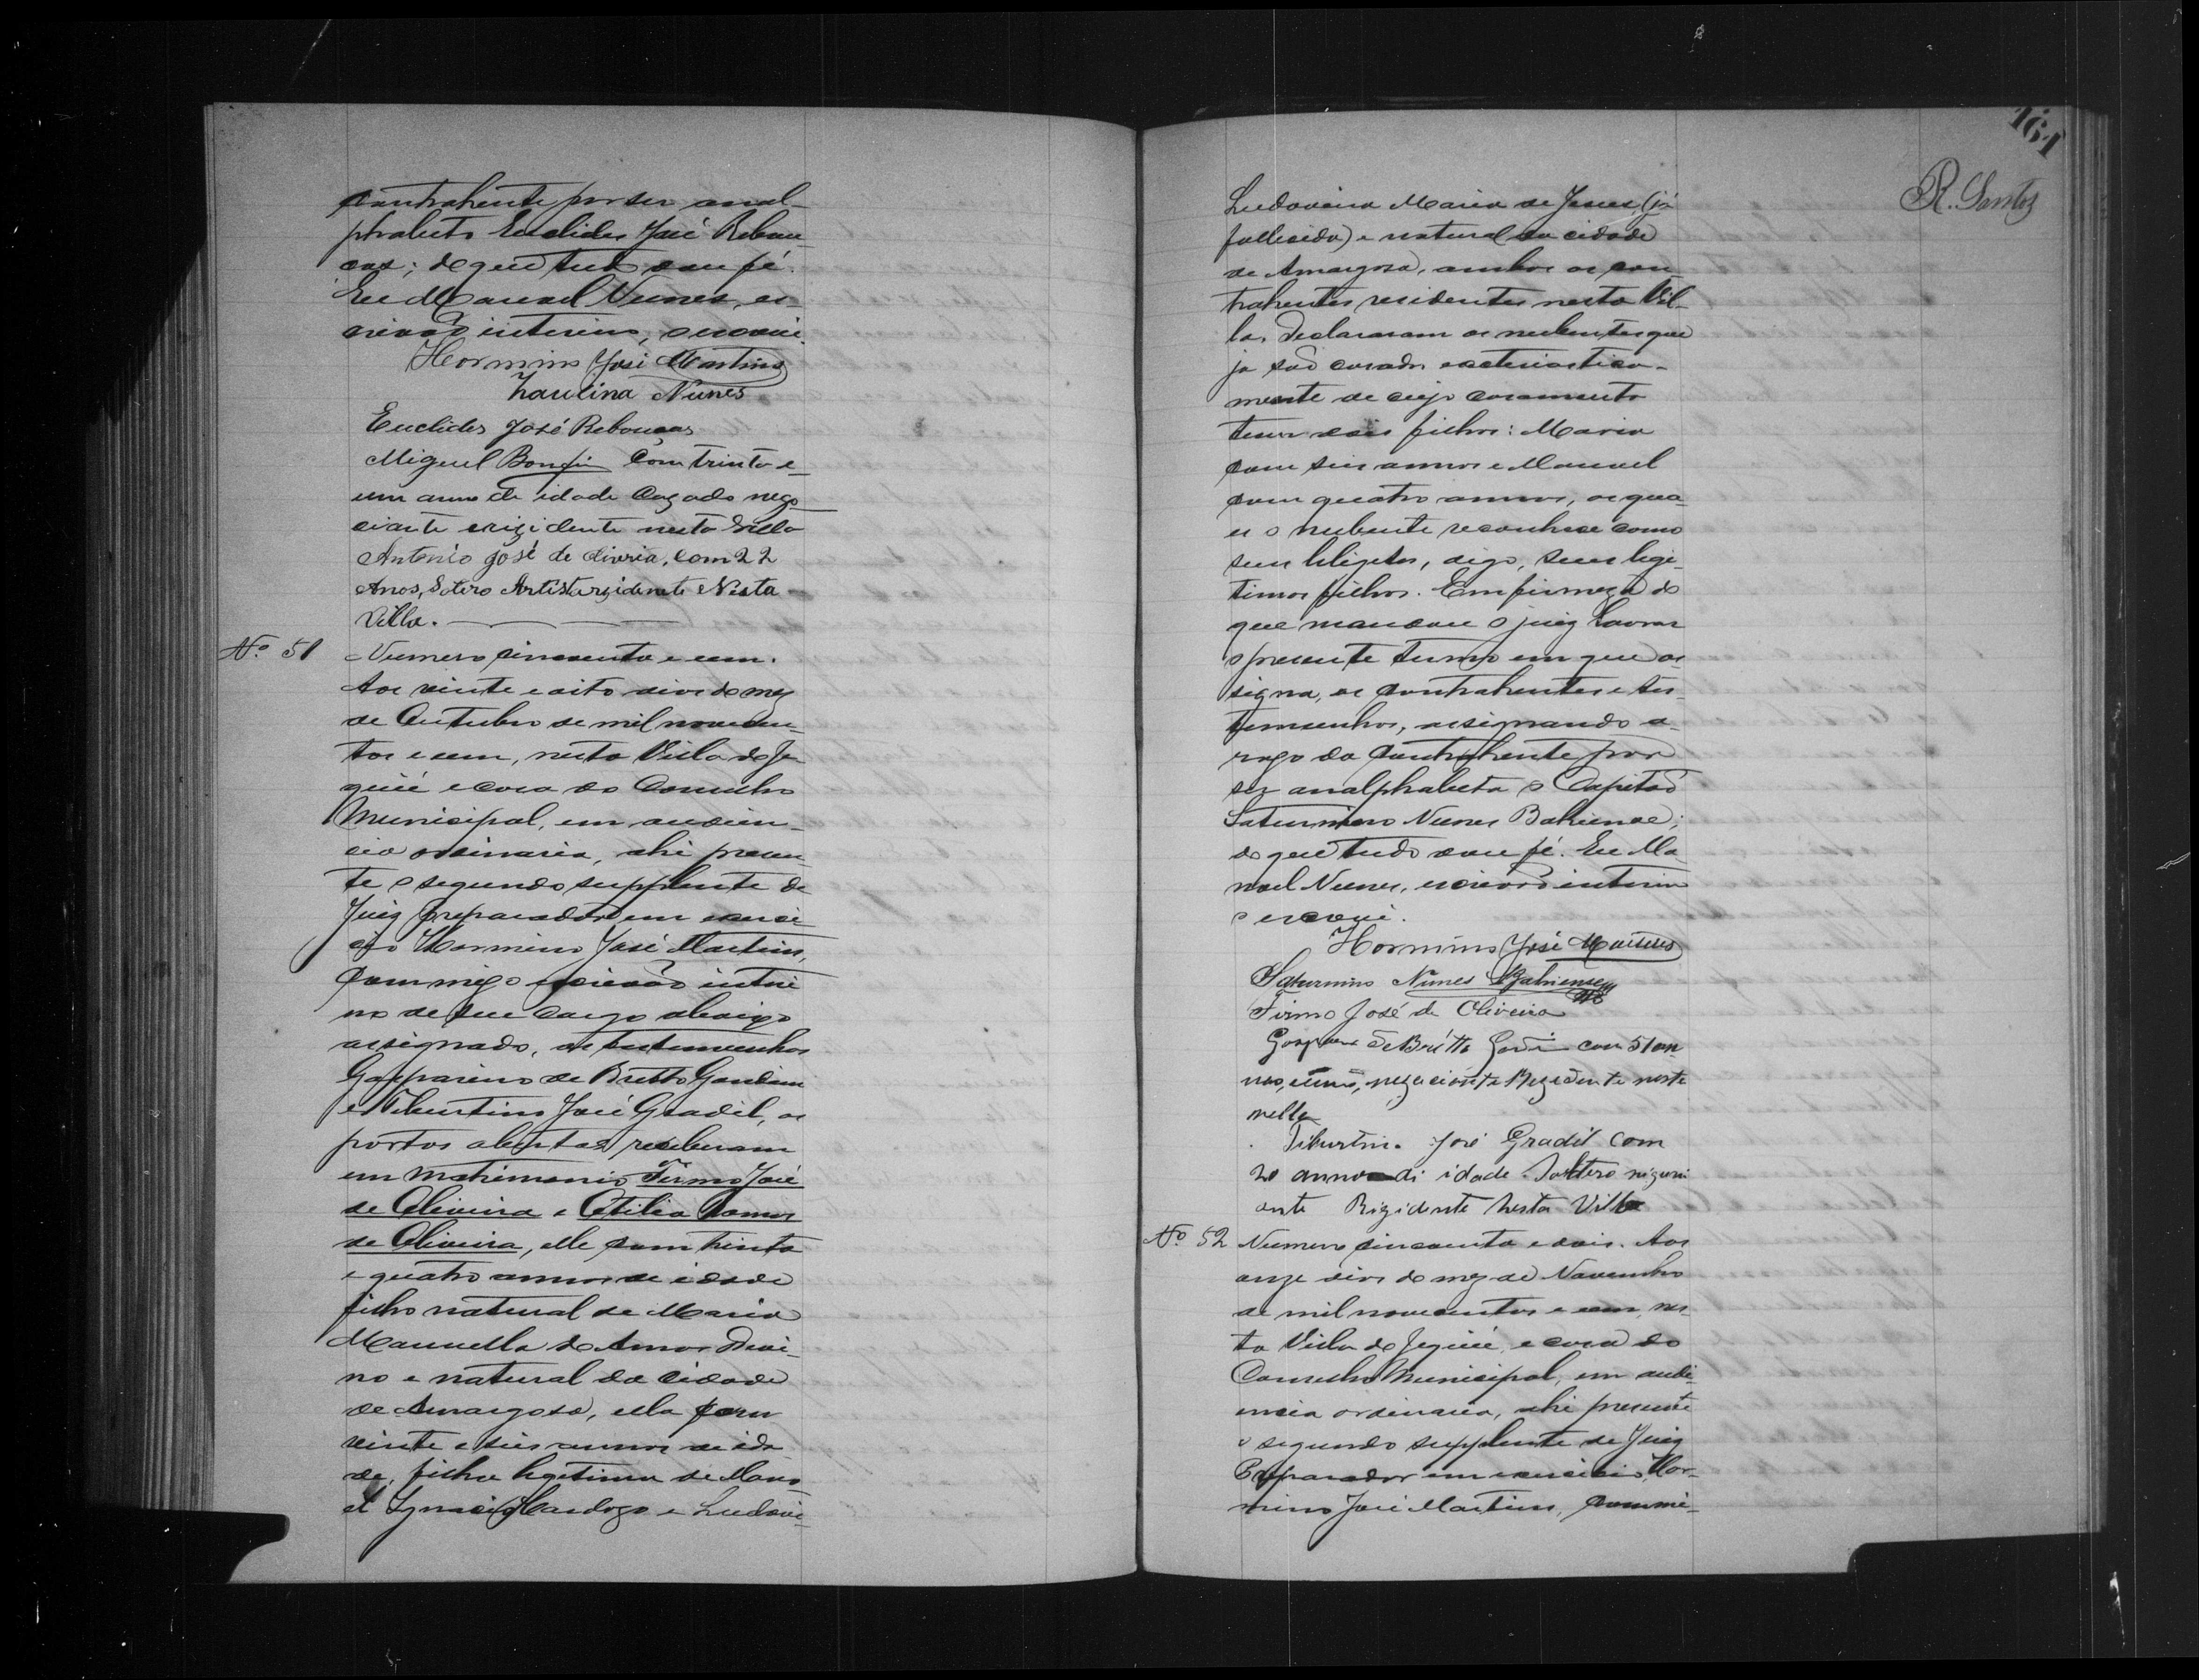 contrahente por ser anal-
phabeto Euclides José Rebou-
ças; de que tudo dou fé.
Eu Manoel Nunes, es-
crivaõ interino, o escrevi.
Hormino José Martins
Paulina Nunes
Euclides José Rebouças
Miguel Bomfim com trinta e
um anno de idade Cazado nego
ciante e rezidente nesta Villa
Antonio José de Oliveira, com 22
Anos, Solero Artista rezidente Nesta
Villa.
Nº 51
Numero cincoenta e um.
Aos vinte e oito dias do mez
de Outubro de mil novecen-
tos e um, nesta Villa de Je-
quié e casa do Conselho
Municipal, em audien-
cia ordinaria, ahi presen-
te o segundo supplente de
Juiz Preparador em exerci-
cio Hormino José Martins,
commigo escrivaõ interi-
no de seu cargo abaixo
assignado, as testemunhas
Gasparino de Britto Gondim
e Tiburtino José Gradil, as
portas abertas, receberam
em matrimonio Firmo José
de Oliveira e Otilia Ramos
de Oliveira, elle com trinta
e quatro annos de idade
filho natural de Maria
Manuella do Amor Divi-
no e natural da cidade
de Amargosa, ella com
vinte e seis annos de ida-
de, filha legitima de Mano-
el Ignacio Cardozo e Ludovi-
161
R. Santos
Ludovina Maria de Jesus (já
fallecida) e natural da cidade
de Amargosa, ambos os con-
trahentes residentes nesta Vil-
la. Declararam os nubentes que
ja saõ casados ecclesiastica-
mente de cujo casamento
tem dois filhos: Maria
com seis annos e Manoel
com quatro annos, os qua-
es o nubente reconhece como
seus ligitos, digo, seus legi-
timos filhos. Em firmeza do
que mandou o juiz lavrar
o presente termo em que as-
signa, os contrahentes e tes-
temunhas, assignando a
rogo da contrahente por
ser analphabeta o Capitaõ
Saturnino Nunes Bahiense;
do que tudo dou fé. Eu Ma-
noel Nunes, escrivaõ interino
o escrevi.
Hormino José Martins
Saturnino Nunes Bahiense
Firmo José de Oliveira
de Britto com 51 an
nos, negociante Rezidente nesta
vella
Tiburtino José Gradil com
20 annos di idade Soltero nigoci
ante Rizidente Nesta Villa
Nº 52
Numero cincoenta e dois. Aos
onze dias do mez de Novembro
de mil novecentos e um, nes-
ta Villa de Jequié, e casa do
Conselho Municipal, em audi-
encia ordinaria, ahi presente
o segundo supplente de Juiz
Preparador em exercicio Hor-
mino José Martins, commi-